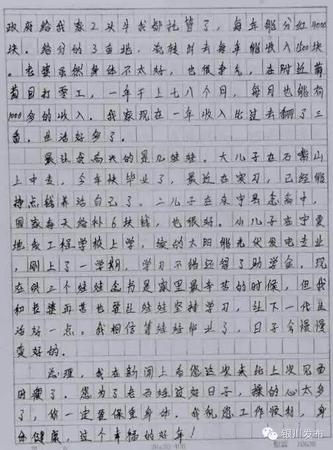 政府给我家2头牛我都托管了，每年能分红4000
块。给分的3亩地，流转到去每年能收入
块。老婆虽然身体不太好，也很争气，在附近葡
萄园打零工，一年干上七八个月，每月也能有
1000多的收入。我家现在一年收入比过去翻了三
番。生活好多了。
最让我高兴的是几娃娃。大儿子在石嘴山
上中专，今年快毕业了，最近在实习，已经能
挣点钱养活自己了。二儿子在永宁县念高中，
国家每天给补6块钱，也很好。小儿子在宁夏
地成工程学校上学，读的太阳能光伏发电专业
，刚上了一学期，学习不错还得了助学金。现
在供三个娃娃念书是家里最辛苦的时候，但我
和老婆再苦也要让娃娃坚持学习，让下一代生
活好一点。我相信等娃娃毕业了，日子会慢慢
变好的。
总理，我在新闻上看您这次来比上次见面
田瘦了。您为了老百姓过好日子，操的心太多
了，你一定要保重身体。我祝您工作顺利，身
体健康，过个幸福的好年！
银川发布